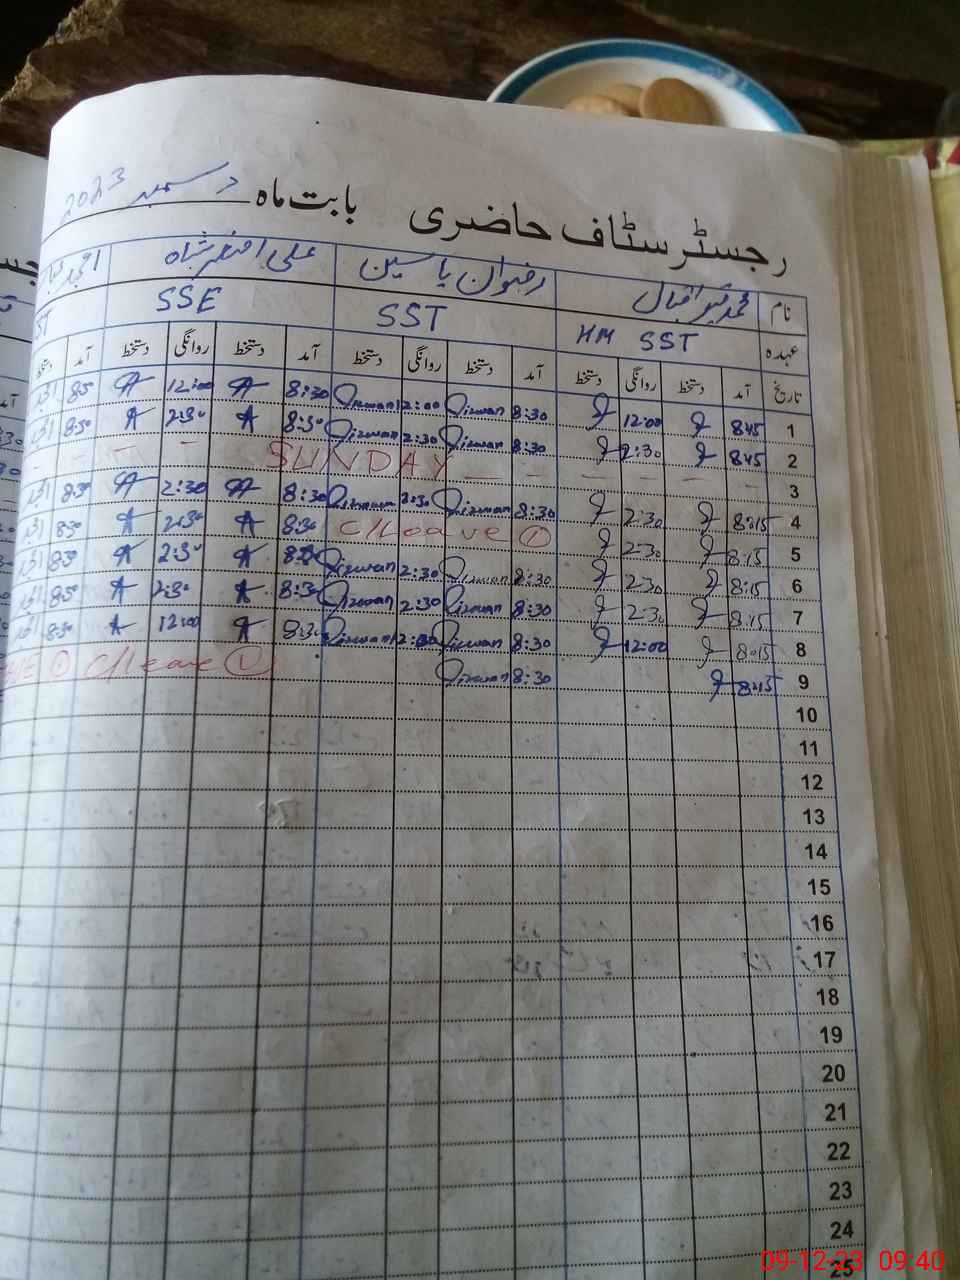 رجسٹر سٹاف حاضری بابت ماہ دسمبر 2023
نام محمد اقبال رضوان یاسین علی اصغر شاہ
عہدہ HM SST SST SSE
تاریخ آمد دستخط روانگی دستخط آمد دستخط روانگی دستخط آمد دستخط روانگی دستخط آمد
1 8:45 12:00 8:30 Rizwan 12:00 Rizwan 8:30 12:00 8:30
2 8:45 2:30 8:30 Rizwan 2:30 Rizwan 8:30 2:30 8:30
3 SUNDAY
4 8:15 2:30 8:30 Rizwan 2:30 Rizwan 8:30 2:30 8:30
5 8:15 2:30 C/Leave ① 8:30 2:30 8:30
6 8:15 2:30 8:30 Rizwan 2:30 Rizwan 8:30 2:30 8:30
7 8:15 2:30 8:30 Rizwan 2:30 Rizwan 8:30 2:30 8:30
8 8:15 12:00 8:30 Rizwan 12:00 Rizwan 8:30 12:00 8:30
9 8:15 8:30 Rizwan C/leave ①
10
11
12
13
14
15
16
17
18
19
20
21
22
23
24
25
09-12-23 09:40